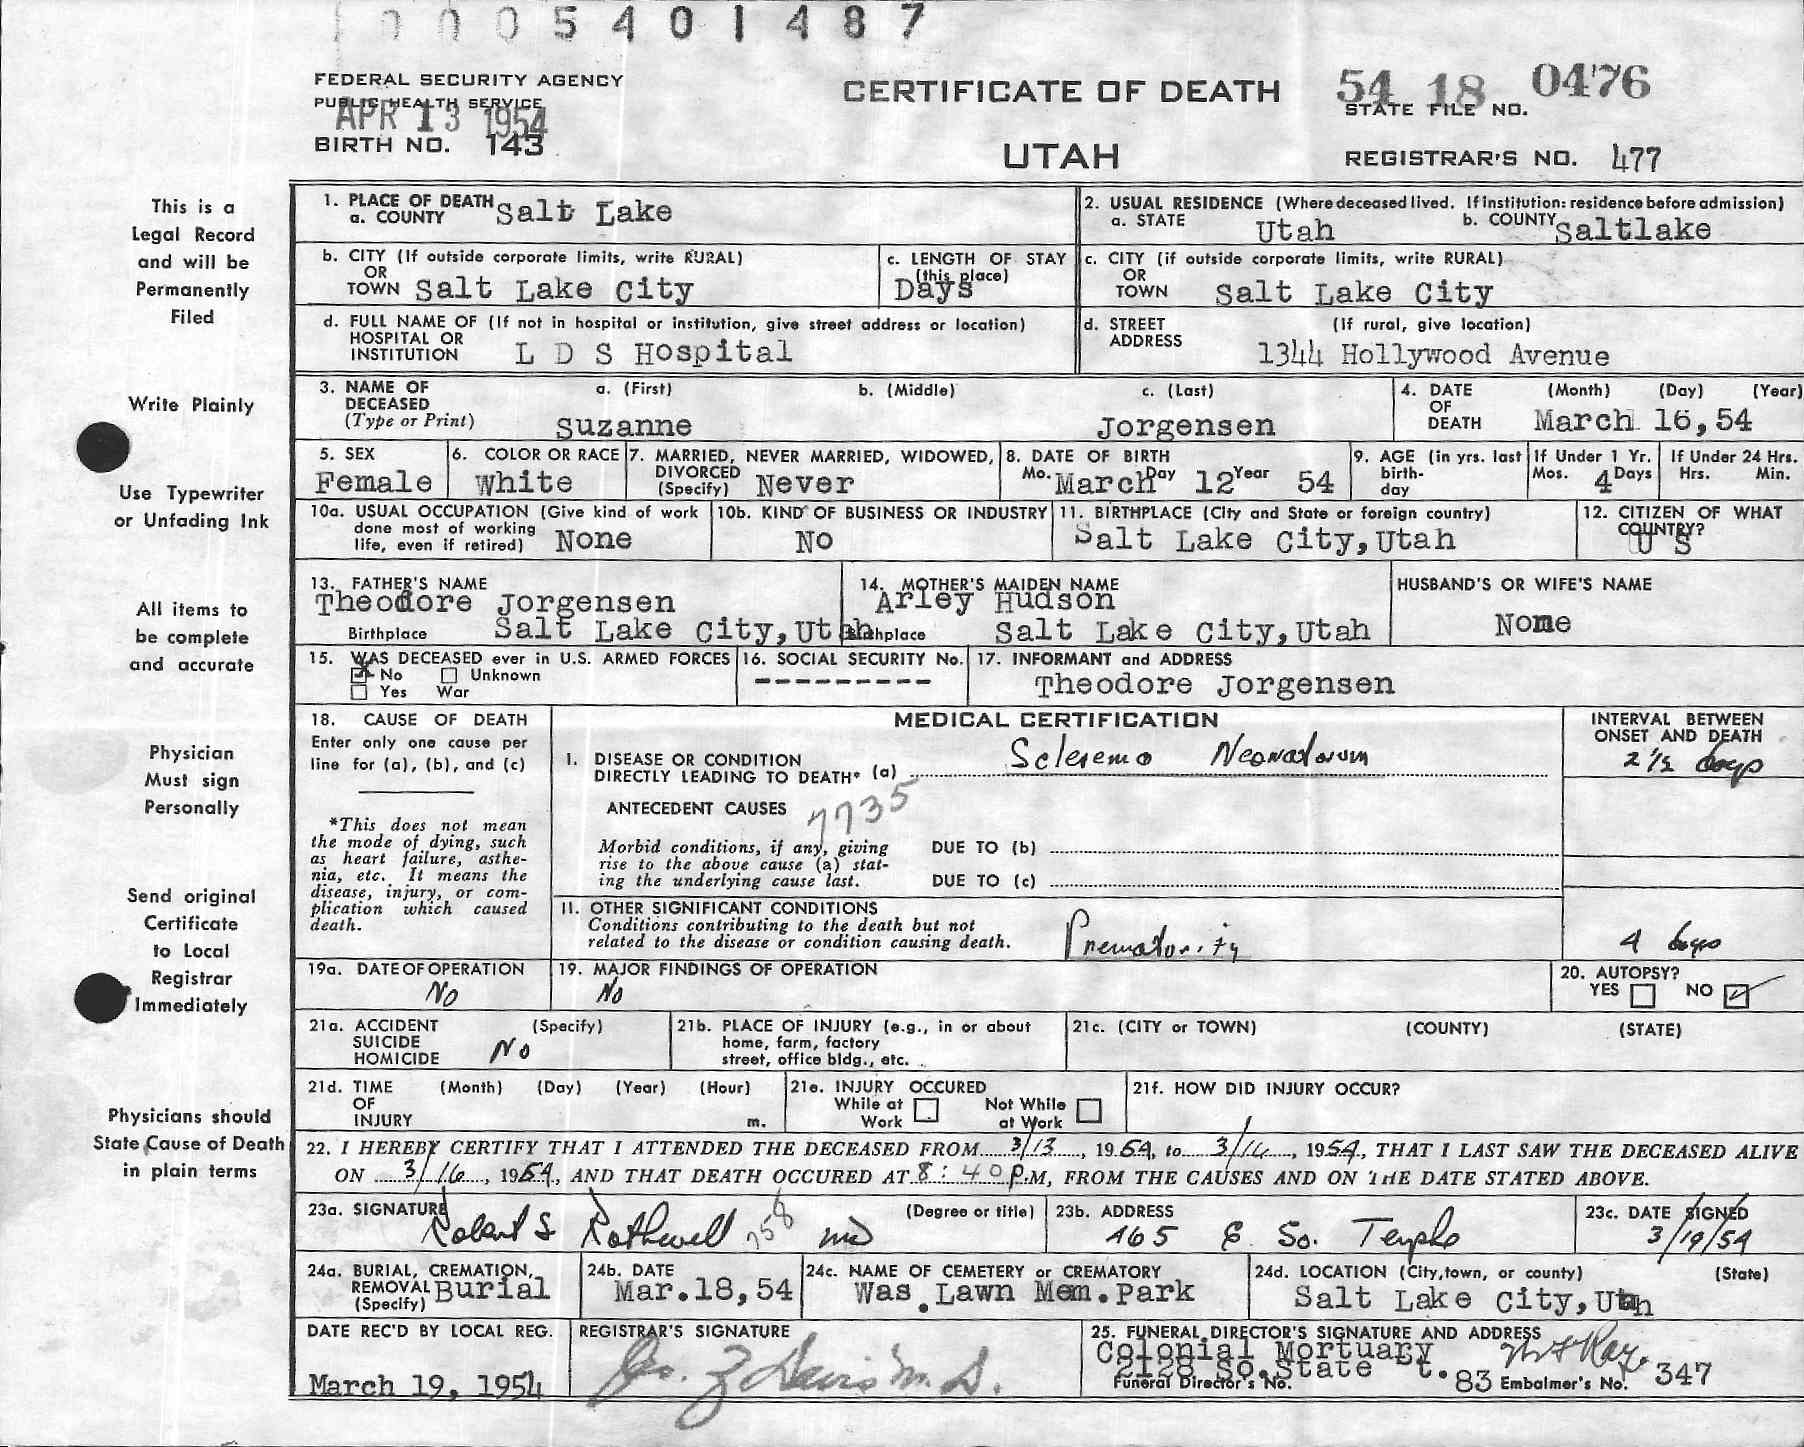 0005401487
FEDERAL SECURITY AGENCY
PUBLIC HEALTH SERVICE
APR 13 1954
BIRTH NO. 143
CERTIFICATE OF DEATH
UTAH
54 18 0476
STATE FILE NO.
REGISTRAR'S NO. 477
This is a
Legal Record
and will be
Permanently
Filed
Write Plainly
Use Typewriter
or Unfading Ink
All items to
be complete
and accurate
Physician
Must sign
Personally
Send original
Certificate
to Local
Registrar
Immediately
Physicians should
State Cause of Death
in plain terms
1. PLACE OF DEATH
a. COUNTY Salt Lake
2. USUAL RESIDENCE (Where deceased lived. If institution: residence before admission)
a. STATE Utah b. COUNTY Saltlake
b. CITY (If outside corporate limits, write RURAL)
OR
TOWN Salt Lake City
c. LENGTH OF STAY
(this place)
Days
c. CITY (if outside corporate limits, write RURAL)
OR
TOWN Salt Lake City
d. FULL NAME OF (If not in hospital or institution, give street address or location)
HOSPITAL OR
INSTITUTION L D S Hospital
d. STREET (If rural, give location)
ADDRESS
1344 Hollywood Avenue
3. NAME OF a. (First) b. (Middle) c. (Last)
DECEASED
(Type or Print) Suzanne Jorgensen
4. DATE (Month) (Day) (Year)
OF
DEATH March 16,54
5. SEX
Female
6. COLOR OR RACE
White
7. MARRIED, NEVER MARRIED, WIDOWED,
DIVORCED
(Specify) Never
8. DATE OF BIRTH
Mo. March Day 12 Year 54
9. AGE (in yrs. last
birth-
day
If Under 1 Yr.
Mos. 4 Days
If Under 24 Hrs.
Hrs. Min.
10a. USUAL OCCUPATION (Give kind of work
done most of working
life, even if retired) None
10b. KIND OF BUSINESS OR INDUSTRY
No
11. BIRTHPLACE (City and State or foreign country)
Salt Lake City,Utah
12. CITIZEN OF WHAT
COUNTRY?
U S
13. FATHER'S NAME
Theodore Jorgensen
Birthplace Salt Lake City,Utah
14. MOTHER'S MAIDEN NAME
Arley Hudson
Birthplace Salt Lake City,Utah
HUSBAND'S OR WIFE'S NAME
None
15. WAS DECEASED ever in U.S. ARMED FORCES
No Unknown
Yes War
16. SOCIAL SECURITY No.
---------
17. INFORMANT and ADDRESS
Theodore Jorgensen
18. CAUSE OF DEATH
Enter only one cause per
line for (a), (b), and (c)
*This does not mean
the mode of dying, such
as heart failure, asthe-
nia, etc. It means the
disease, injury, or com-
plication which caused
death.
MEDICAL CERTIFICATION
I. DISEASE OR CONDITION
DIRECTLY LEADING TO DEATH* (a) Sclerema Neonatorum
ANTECEDENT CAUSES
7735
Morbid conditions, if any, giving
rise to the above cause (a) stat-
ing the underlying cause last.
DUE TO (b)
DUE TO (c)
INTERVAL BETWEEN
ONSET AND DEATH
2 1/2 days
II. OTHER SIGNIFICANT CONDITIONS
Conditions contributing to the death but not
related to the disease or condition causing death.
Prematurity
4 days
19a. DATE OF OPERATION
No
19. MAJOR FINDINGS OF OPERATION
No
20. AUTOPSY?
YES NO
21a. ACCIDENT (Specify)
SUICIDE
HOMICIDE No
21b. PLACE OF INJURY (e.g., in or about
home, farm, factory
street, office bldg., etc.
21c. (CITY or TOWN) (COUNTY) (STATE)
21d. TIME (Month) (Day) (Year) (Hour)
OF
INJURY m.
21e. INJURY OCCURED
While at Work Not While at Work
21f. HOW DID INJURY OCCUR?
22. I HEREBY CERTIFY THAT I ATTENDED THE DECEASED FROM 3/13, 1954, to 3/16, 1954, THAT I LAST SAW THE DECEASED ALIVE
ON 3/16, 1954, AND THAT DEATH OCCURED AT 8:40 P.M, FROM THE CAUSES AND ON THE DATE STATED ABOVE.
23a. SIGNATURE (Degree or title)
Robert S Rothwell 758 MD
23b. ADDRESS
465 E So. Temple
23c. DATE SIGNED
3/19/54
24a. BURIAL, CREMATION,
REMOVAL
(Specify) Burial
24b. DATE
Mar.18,54
24c. NAME OF CEMETERY or CREMATORY
Was.Lawn Mem.Park
24d. LOCATION (City,town, or county) (State)
Salt Lake City,Utah
DATE REC'D BY LOCAL REG.
March 19, 1954
REGISTRAR'S SIGNATURE
Davis M.D.
25. FUNERAL DIRECTOR'S SIGNATURE AND ADDRESS
Colonial Mortuary
2128 So.State t.
Funeral Director's No. 83 Embalmer's No. 347